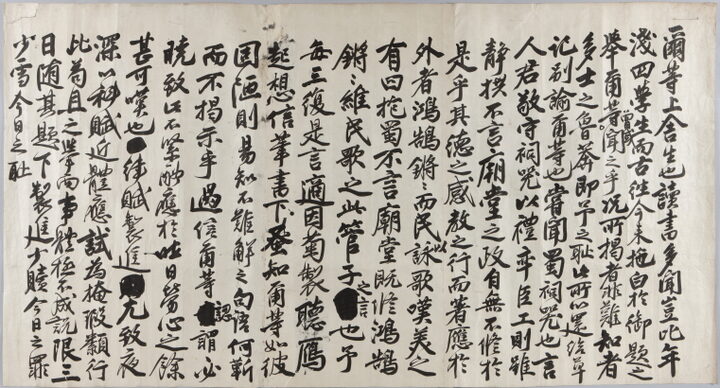 爾等上舍生也讀書多聞豈比年
淺四學生而古往今來曾或拖白於御題之
擧爾等聞之乎況所揭者非難知者
多士之魯莽即予之恥也所以還給草
記別諭爾等也嘗聞蜀祠器也言
人君敬守祠器以禮率臣工則雖
靜拱不言廟堂之政自無不修於
是乎其德之感教之行而著應於
外者鴻鵠鏘〻而民詠歌嘆美之
有曰抱蜀不言廟堂既修鴻鵠
鏘〻維民歌之此管子之言也予
每三復是言適因菊製聽鴈
起想信筆書下蚤知爾等如彼
固陋則易知不難解之句語何靳
而不揭示乎過信爾等認謂必
曉致此不緊酬應於此日勞心之餘
甚可嘆也律賦製進尤致夜
深以科賦近體應試為掩瑕纇行
此苟且之擧而事體極不成說限三
日隨其題下製進少贖今日之罪
少雪今日之恥